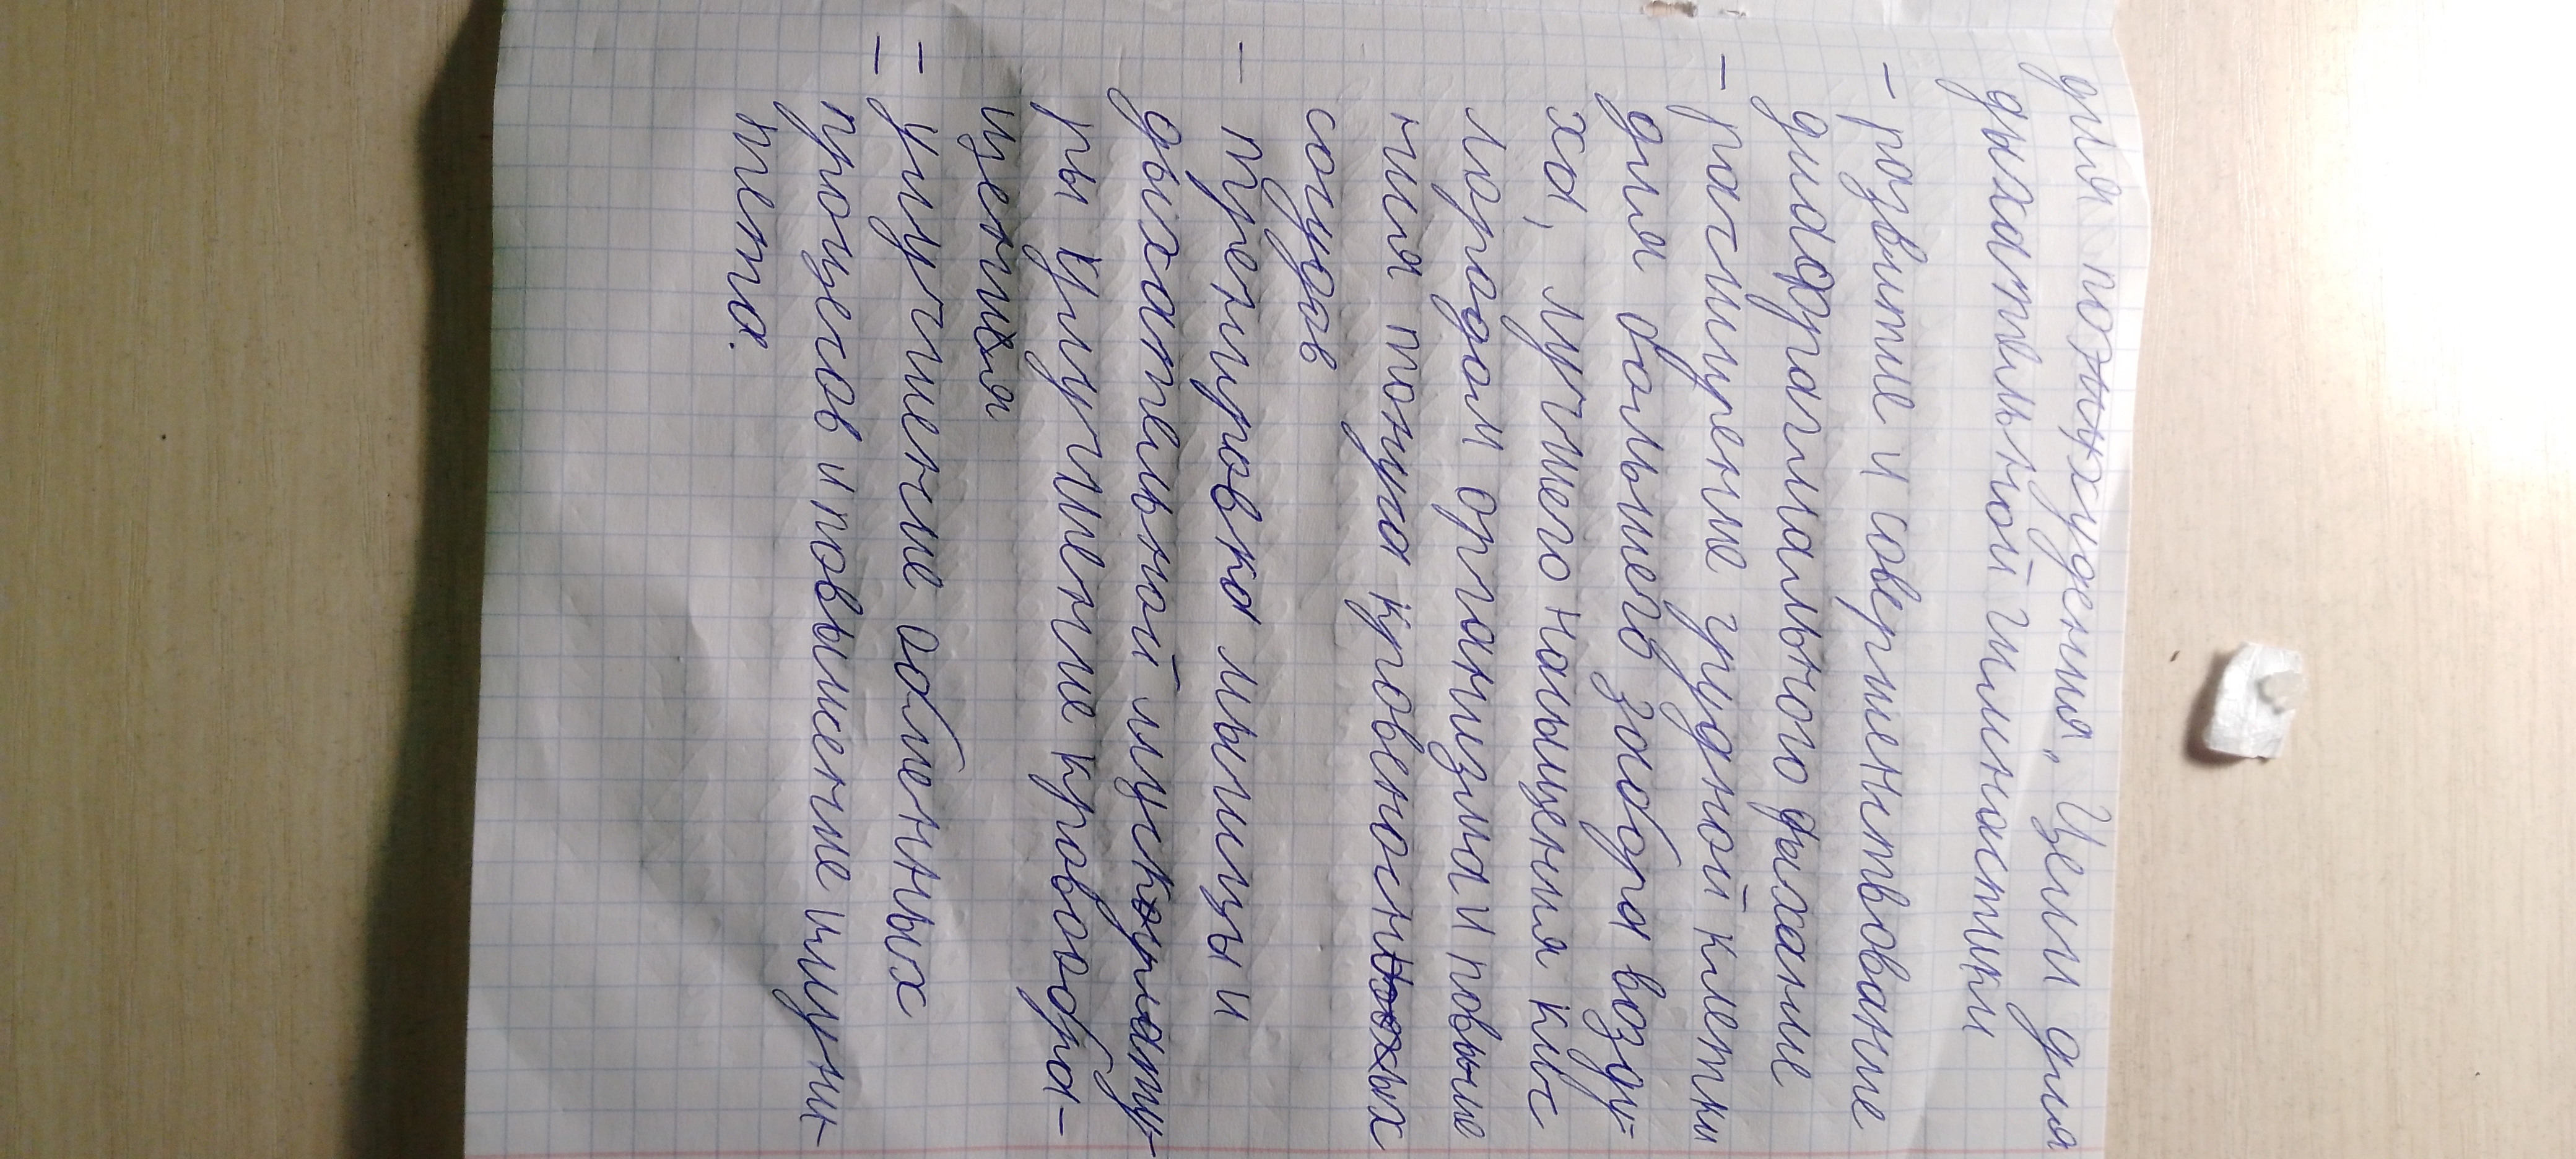 для похудения. Цели для
дыхательной гимнастики
– развитие и совершенствование
диафрагмального дыхание
– расширение грудной клетки
для большего забора возду-
ха, лучшего насыщения кис
лородом организма и повыше
ния тонуса кровеносных
сосудов
– тренировка мышцы и
дыхательной мускулату-
ры и улучшение кровообра-
щения
– улучшение обменных
– процесов и повышение иммуни-
тета.